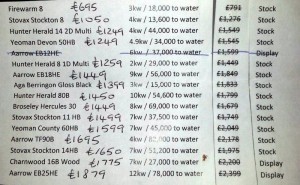 Firewarm 8 £695 3kw / 10,000 to water £791 Stock
Stovax Stockton 8 £1050 4kw / 13,600 to water £1,276 Stock
Hunter Herald 14 2D Multi £1249 4kw / 44,000 to water £1,549 Stock
Yeoman Devon 50HB £1249 4.9kw / 34,000 to water £1,545 Stock
Aarrow EB12HE 6kw / 37,000 to water £1,599 Display
Hunter Herald 8 1D Multi £1259 2kw / 29,000 to water £1,449 Stock
Aarrow EB18HE £1449 9kw / 56,000 to water £1,849 Stock
Aga Berrington Gloss Black £1399 3kw / 15,000 to water £1,833 Stock
Hunter Herald 80B £1450 7kw / 34,000 to water £1,799 Stock
Broseley Hercules 30 £1449 8kw / 69,000 to water £1,749 Stock
Stovax Stockton 11 HB £1499 7kw / 37,000 to water £1,899 Stock
Yeoman County 60HB £1599 7kw / 45,000 to water Stock
Aarrow TF90B £1695 4kw / 82,000 to water Stock
Stovax Stockton 14HB £1650 5kw / 71,000 to water £1,975 Stock
Charnwood 16B Wood £1775 7kw / 27,000 to water £2,200 Display
Aarrow EB25HE £1879 12kw / 78,000 to water £2,399 Display